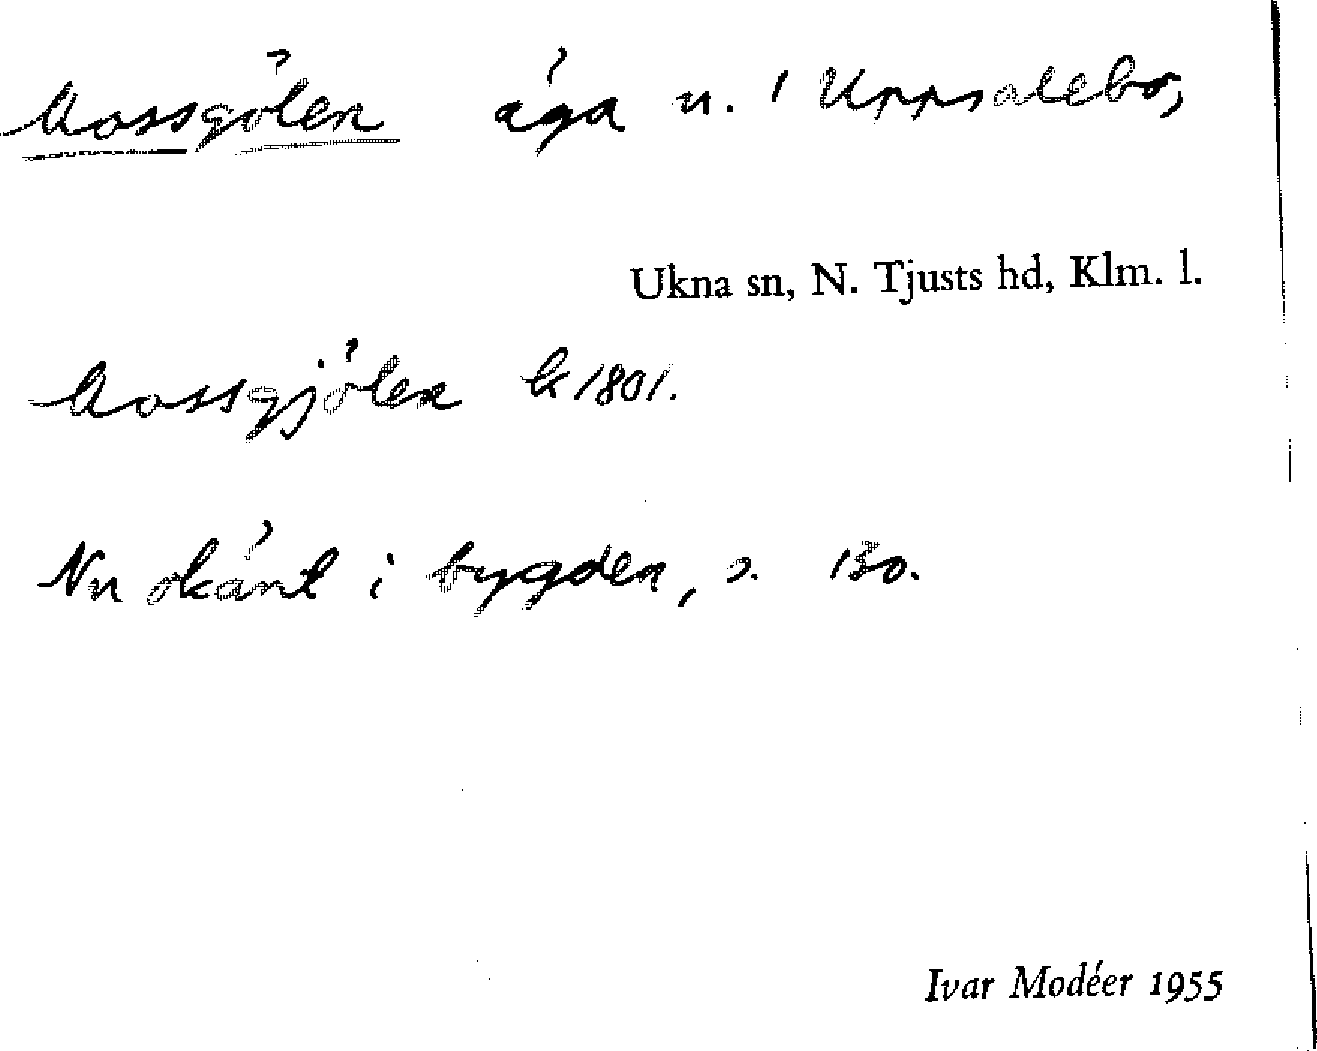 Mossgölen äga n. i Uppsalebo,
Ukna sn, N. Tjusts hd, Klm. l.
Mossgjölen k 1801.
Nu okänt i bygden, s. 130.
Ivar Modéer 1955